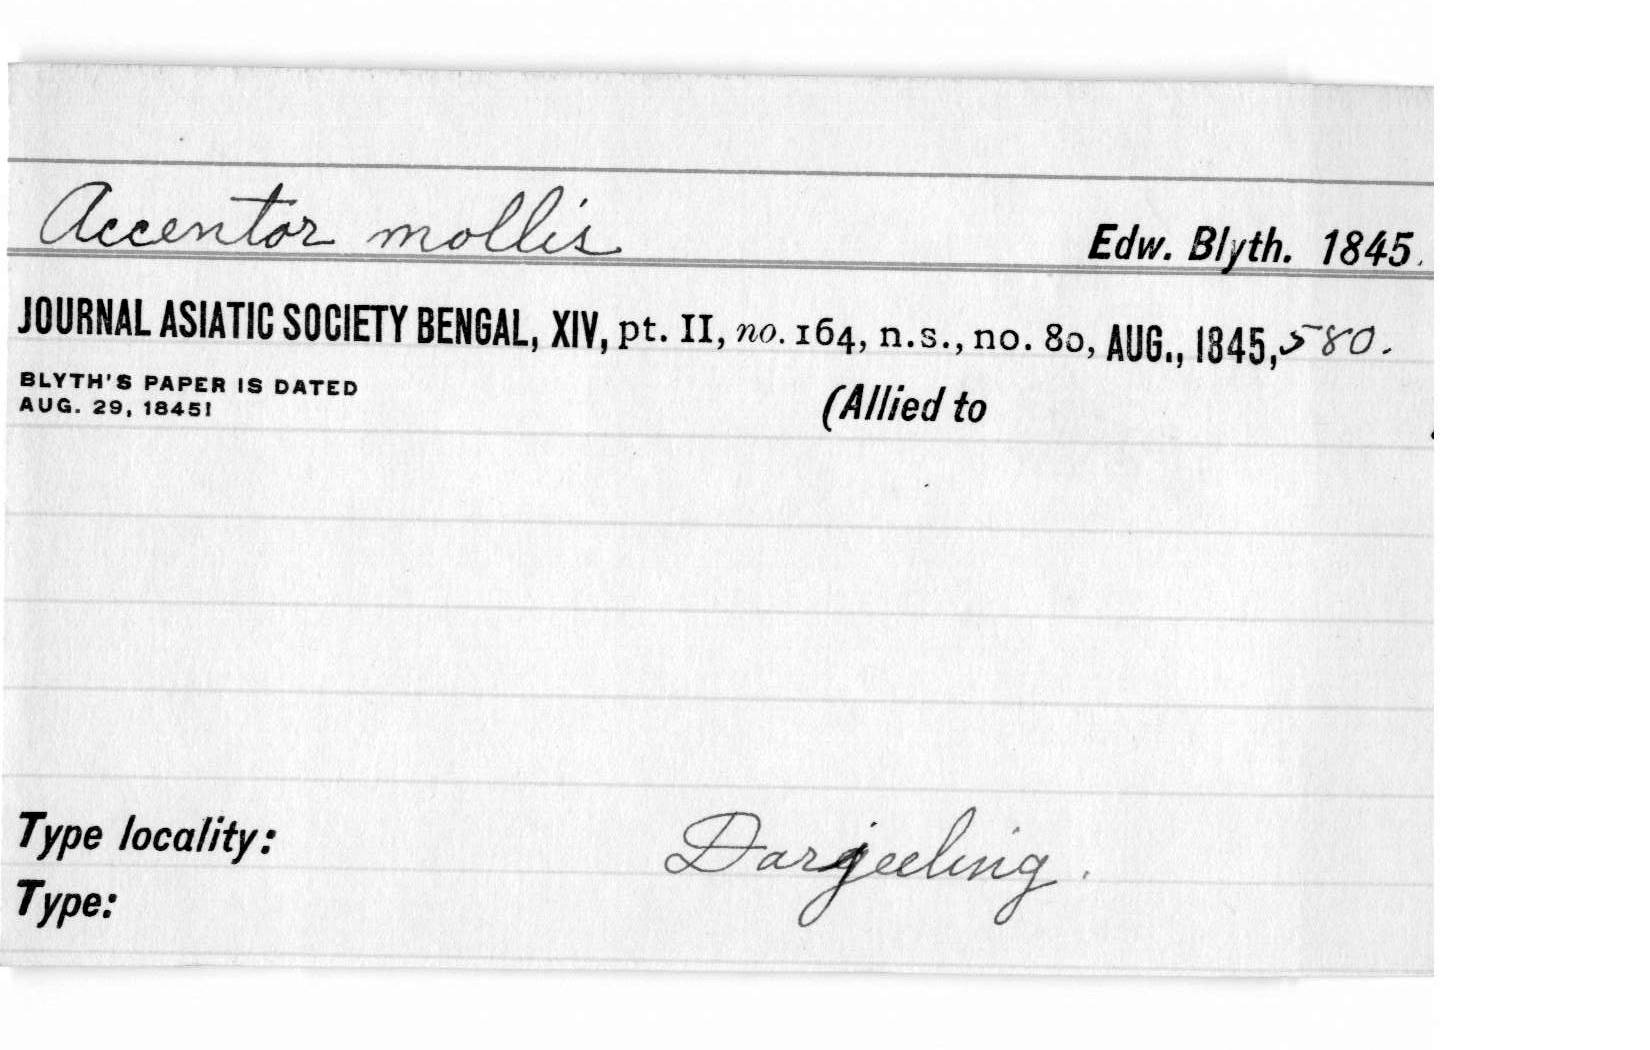 Accentor mollis Edw. Blyth. 1845.
JOURNAL ASIATIC SOCIETY BENGAL, XIV, pt. II, no. 164, n.s., no. 80, AUG., 1845, 580.
BLYTH'S PAPER IS DATED
AUG. 29, 1845!
(Allied to
Type locality: Darjeeling.
Type: